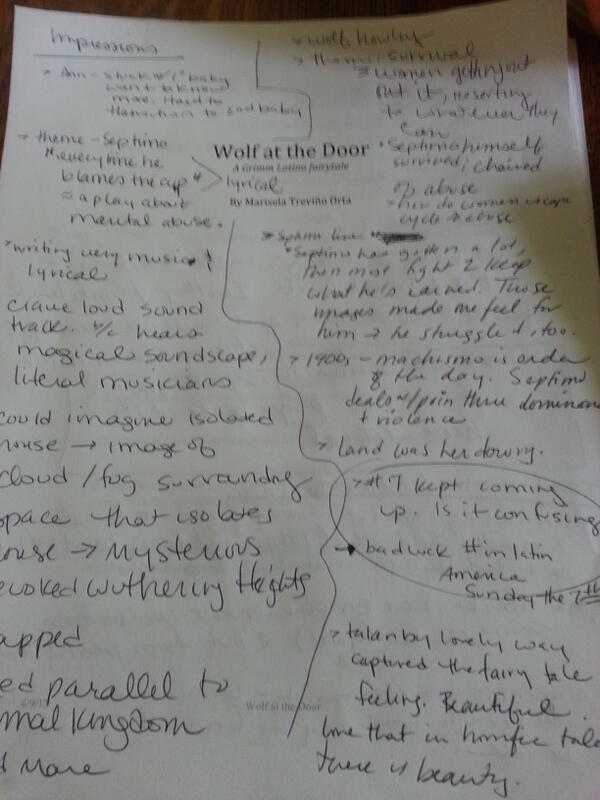 Impressions
> Ann - stuck w/ 1st baby
want to know
more. Hard to
transition to 2nd baby
> theme - Septimo
"everytime he
blames the cup"
≈ a play about
mental abuse.
> writing very musical
lyrical
crave loud sound
track. b/c hears
magical soundscape,
literal musicians
could imagine isolated
house → image of
cloud / fog surrounding
space that isolates
house → mysterious
evoked Wuthering Heights
apped
ed parallel to
mal Kingdom
d more
Wolf at the Door
A Grimm Latino fairytale
> lyrical
By Marisela Treviño Orta
> wolf howling
> theme: survival
≈ women getting out
of it, resorting
to whatever they
can
Septimo himself
survived; chained
of abuse
how do women escape
cycle of abuse
> Septimo
"Septimo has gotten a lot,
then must fight 2 keep
what he's earned. Those
images made me feel for
him → he struggled, too.
> 1900s - machismo is order
of the day. Septimo
deals w/ pain thru dominance
+ violence
> land was her dowry.
> #7 kept coming
up. Is it confusing
bad luck # in latin
America
Sunday the 7th
> lovely way
captured the fairy tale
feeling. Beautiful.
love that in horrific tale
there is beauty.
Wolf at the Door